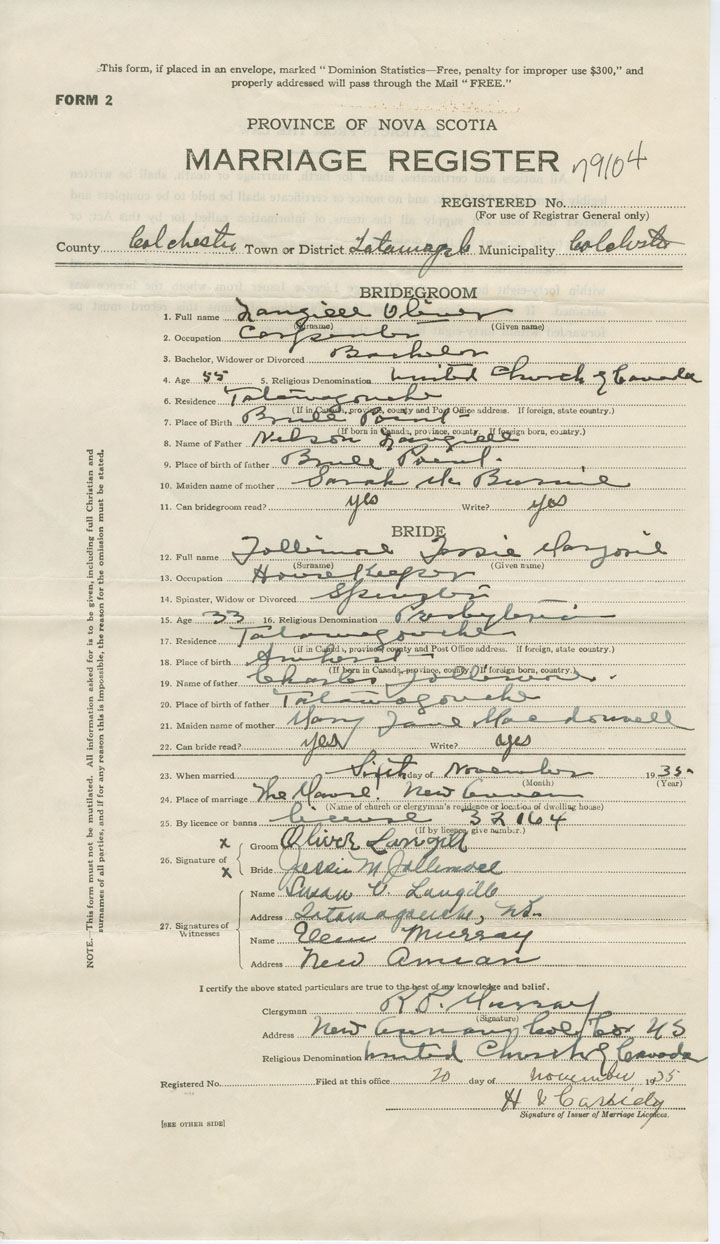 This form, if placed in an envelope, marked "Dominion Statistics—Free, penalty for improper use $300," and
properly addressed will pass through the Mail "FREE."
FORM 2
PROVINCE OF NOVA SCOTIA
MARRIAGE REGISTER 79104
REGISTERED No.
(For use of Registrar General only)
County Colchester Town or District Tatamag Municipality Colchester
BRIDEGROOM
1. Full name Langille Oliver
(Surname) (Given name)
2. Occupation Carpenter
3. Bachelor, Widower or Divorced Bachelor
4. Age 55 5. Religious Denomination United Church of Canada
6. Residence Tatamagouche
(If in Canada, province, county and Post Office address. If foreign, state country.)
7. Place of Birth Brule Point
(If born in Canada, province, county. If foreign born, county.)
8. Name of Father Nelson Langille
9. Place of birth of father Brule Point.
10. Maiden name of mother Sarah Mc Burnie
11. Can bridegroom read? yes Write? yes
BRIDE
12. Full name Jollimore Jessie Marjorie
(Surname) (Given name)
13. Occupation House Keeper
14. Spinster, Widow or Divorced Spinster
15. Age 33 16. Religious Denomination Presbyterian
17. Residence Tatamagouche
(If in Canada, province, county and Post Office address. If foreign, state country.)
18. Place of birth Amherst
(If born in Canada, province, county. If foreign born, country.)
19. Name of father Charles Jollimore.
20. Place of birth of father Tatamagouche
21. Maiden name of mother Mary Jane Macdonnell
22. Can bride read? yes Write? yes
23. When married Sixth day of November 1935.
(Month) (Year)
24. Place of marriage The Manse. New Annan
(Name of church or clergyman's residence or location of dwelling house)
25. By licence or banns license 32164
(If by licence, give number.)
26. Signature of x Groom Oliver Langill
x Bride Jessie M Jollimore
27. Signatures of Witnesses
Name Susan V. Langille
Address Tatamagouche, N.S.
Name Murray
Address New Annan
I certify the above stated particulars are true to the best of my knowledge and belief.
Clergyman R. P. Murray
(Signature)
Address New Annan Col Co. N S
Religious Denomination United Church of Canada
Registered No. Filed at this office 20 day of November 1935
H Cassidy
Signature of Issuer of Marriage Licences.
[SEE OTHER SIDE]
NOTE.—This form must not be mutilated. All information asked for is to be given, including full Christian and
surnames of all parties, and if for any reason this is impossible, the reason for the omission must be stated.